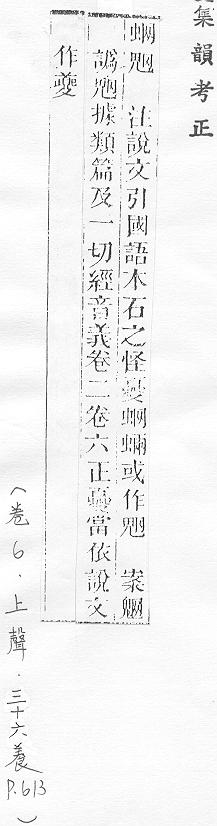 集韻考正
蛧 注說文引國語木石之怪蛧蜽或作 案魍
譌據類篇及一切經音義卷二卷六正當依說文
作夔
(卷6．上聲．三十六養 P.613)